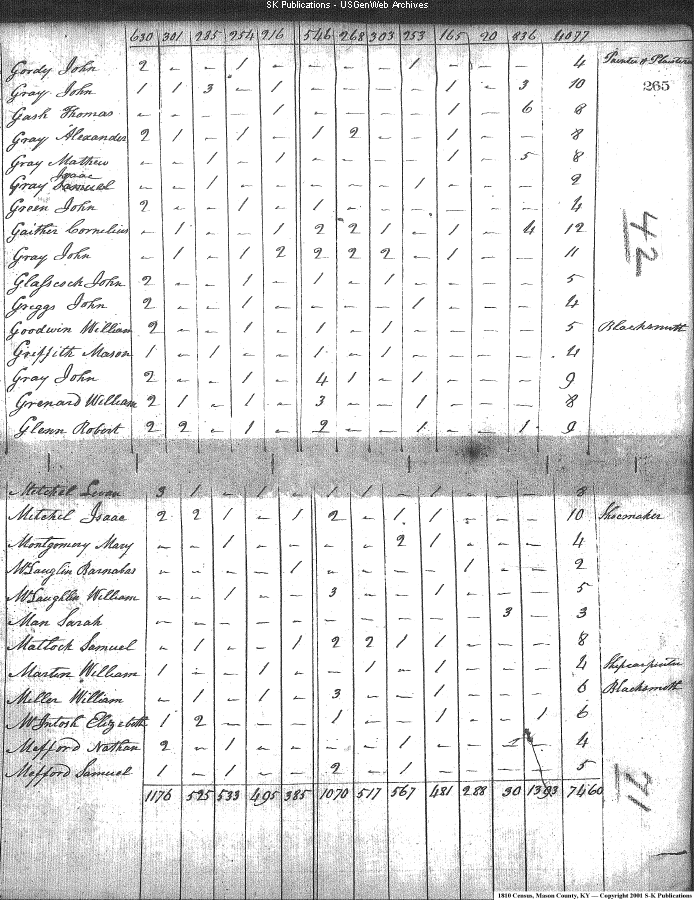 SK Publications - USGenWeb Archives
630 301 285 254 216 546 268 303 253 165 20 836 4077
Gordy John 2 - - 1 - - - - 1 - - - 4 Painter & Plasterer
265
Gray John 1 1 3 - 1 - - - - 1 - 3 10
Gash Thomas - - - - 1 - - - - 1 - 6 8
Gray Alexander 2 1 - 1 - 1 2 - - 1 - - 8
Gray Mathew - - 1 - 1 - - - - 1 - 5 8
Isaac
Gray Samuel - - 1 - - - - - 1 - - - 2
Green John 2 - - 1 - 1 - - - - - - 4
Gaither Cornelius - 1 - - 1 2 2 1 - 1 - 4 12
42
Gray John - 1 - 1 2 2 2 2 - 1 - - 11
Glasscock John 2 - - 1 - 1 - 1 - - - - 5
Griggs John 2 - - 1 - - - - 1 - - - 4
Goodwin William 2 - - 1 - 1 - 1 - - - - 5 Blacksmith
Griffith Mason 1 - 1 - - 1 - 1 - - - - 4
Gray John 2 - - 1 - 4 1 - 1 - - - 9
Grenard William 2 1 - 1 - 3 - - 1 - - - 8
Glenn Robert 2 2 - 1 - 2 - - 1 - - 1 9
Mitchel 3 1 - 1 - 1 1 - 1 - - - 8
Mitchel Isaac 2 2 1 - 1 2 - 1 1 - - - 10 Shoemaker
Montgomery Mary - - 1 - - - - 2 1 - - - 4
McLauglin Barnabas - - - - 1 - - - - 1 - - 2
McLaughlin William - - 1 - - 3 - - 1 - - - 5
Man Sarah - - - - - - - - - - 3 - 3
Mattock Samuel - 1 - - 1 2 2 1 1 - - - 8
Martin William 1 - - 1 - - 1 - 1 - - - 4 Shipcarpenter
Meller William - 1 - 1 - 3 - - 1 - - - 6 Blacksmith
McIntosh Elizabeth 1 2 - - - 1 - - 1 - - 1 6
Mefford Nathan 2 - 1 - - - - 1 - - - - 4
Mefford Samuel 1 - 1 - - 2 - 1 - - - - 5
71
1176 525 533 495 385 1070 517 567 481 288 30 1393 7460
1810 Census, Mason County, KY — Copyright 2001 S-K Publications